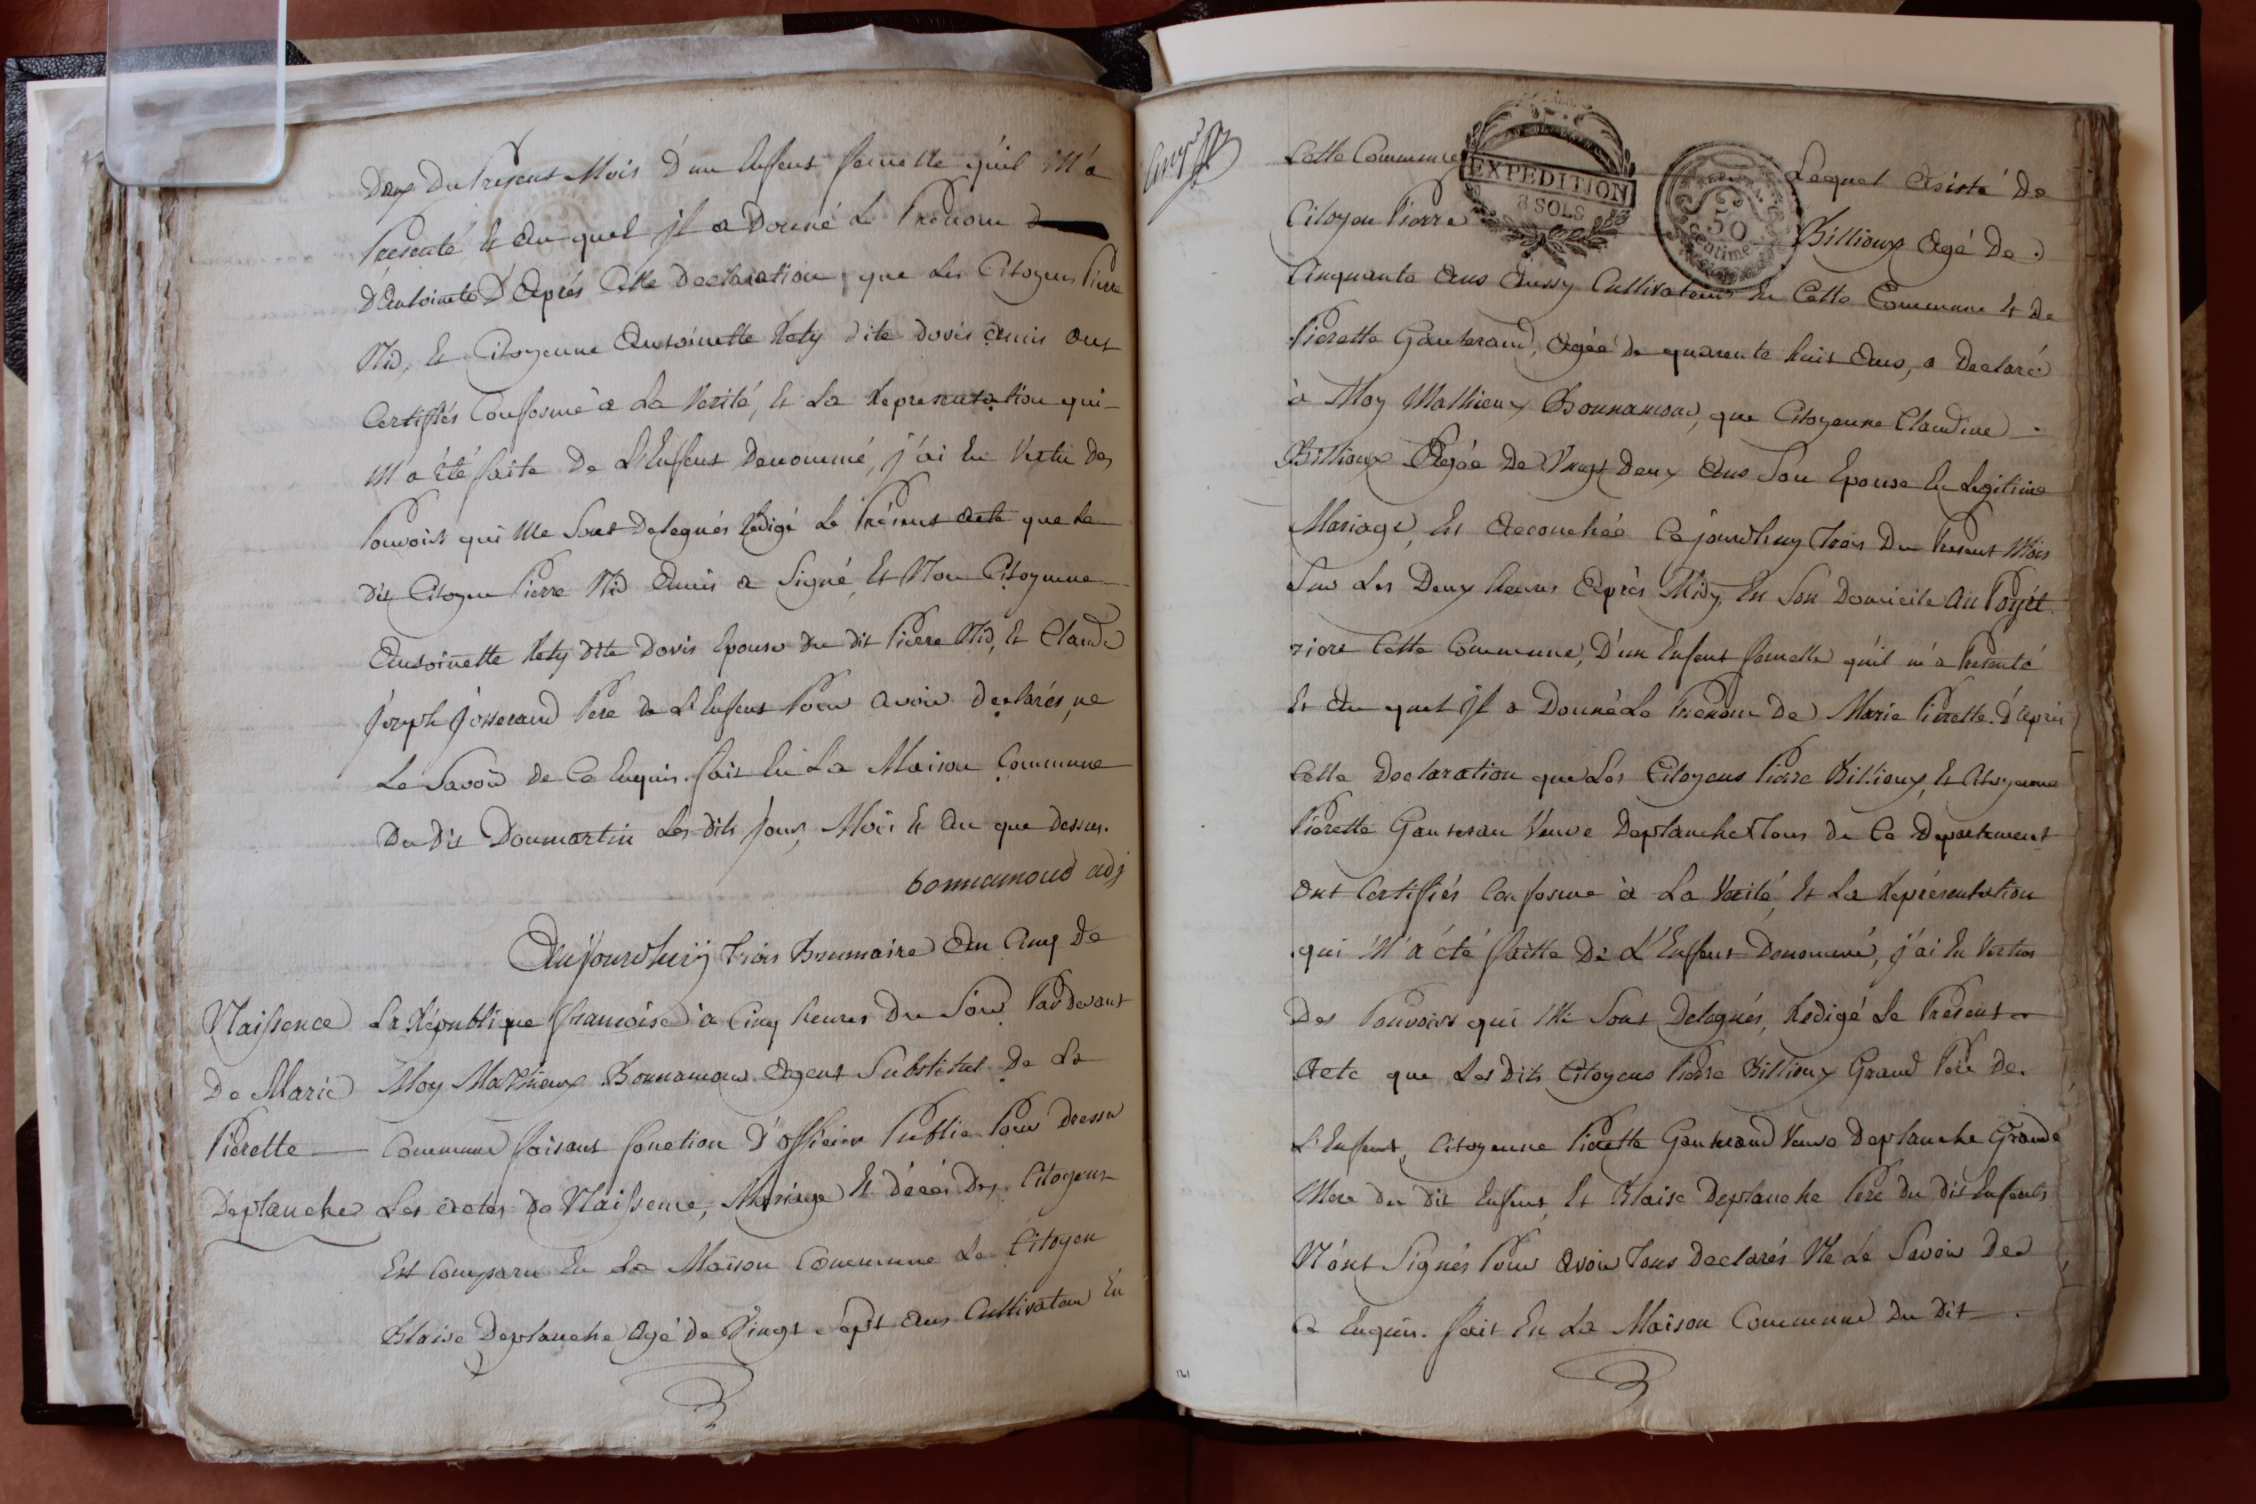 Deux Du Present Mois D'un Enfent femelle qu'il M'a
Presenté, Et Au quel Jl a Donné Le Prénom
D'Entoinete D'Après Cette Declaration, que Les Citoyens Pierre
Nid, Et Citoyenne Antoinette Rety dite Dovis amis ont
Certiffiés Conforme à La Verité, Et La Representation qui
M'a été faite De L'Enfent Denommé, j'ai En Vertu Des
Pouvoirs qui Me Sont Delegués Redigé Le Présent Acte que Le
Dit Citoyen Pierre Nid Amis a Signé, Et Non Citoyenne
Antoinette Rety dite Dovis Epouse du dit Pierre Nid, Et Claude
Joseph Josserand Pere de L'Enfent Pour avoir Declarés, ne
Le Savoir de Ce Enquis. fait En La Maison Commune
Du Dit Dommartin Les Dits Jour, Mois Et An que Dessus.
bonnamoud adj
Aujourdhuÿ trois Brumaire An Cinq De
Naissence La République francoise à Cinq heures Du Soir Pardevant
De Marie Moy Mathieux Bonnamour Agent Substitut De La
Pierette Commune faisant fonction D'officier Public Pour Dresser
Deplanche Les Actes De Naissence, Mariage Et décés Des Citoyens
Est Comparu En La Maison Commune Le Citoyen
Blaise Deplanche Agé de Vingt Sept Ans Cultivateur En
Cette Commune Lequel Asisté De
EXPEDITION
8 SOLS
50
Centimes
Citoyen Pierre Billioux Agé De
Cinquante Ans Aussy Cultivateur En Cette Commune Et De
Pierette Gauterand, Agée de quarente huit Ans, a Declaré
à Moy Mathieux Bonnamour, que Citoyenne Claudine
Billioux Agée De Vingt Deux Ans Son Epouse En Legitime
Mariage, Est Accouchée Ce jourdhuy Trois Du Present Mois
Sur Les Deux heures Après Midy, En Son Domicile Au Poyët
riere Cette Commune, D'un Enfent femelle qu'il m'a Presenté
Et Au quel Jl a Donné Le Prenom De Marie Pierette. D'après
Cette Declaration que Les Citoyens Pierre Billioux, Et Citoyenne
Pierette Gauterau Veuve Deplanche Tous De Ce Departement
Ont Certiffiés Conforme à La Verité, Et La Représentation
qui M'a été faitte De L'Enfent Denommé, j'ai En Vertus
Des Pouvoirs qui Me Sont Delegués, Redigé Le Présent
Acte que Les Dits Citoyens Pierre Billioux Grand Père De
L'Enfent, Citoyenne Pierette Gauterand Veuve Deplanche Grande
Mere du Dit Enfent, Et Blaise Deplanche Père Du Dit Enfents
N'ont Signés Pour Avoir Tous Declarés Ne Le Savoir De
Ce Enquis. fait En La Maison Commune Du Dit